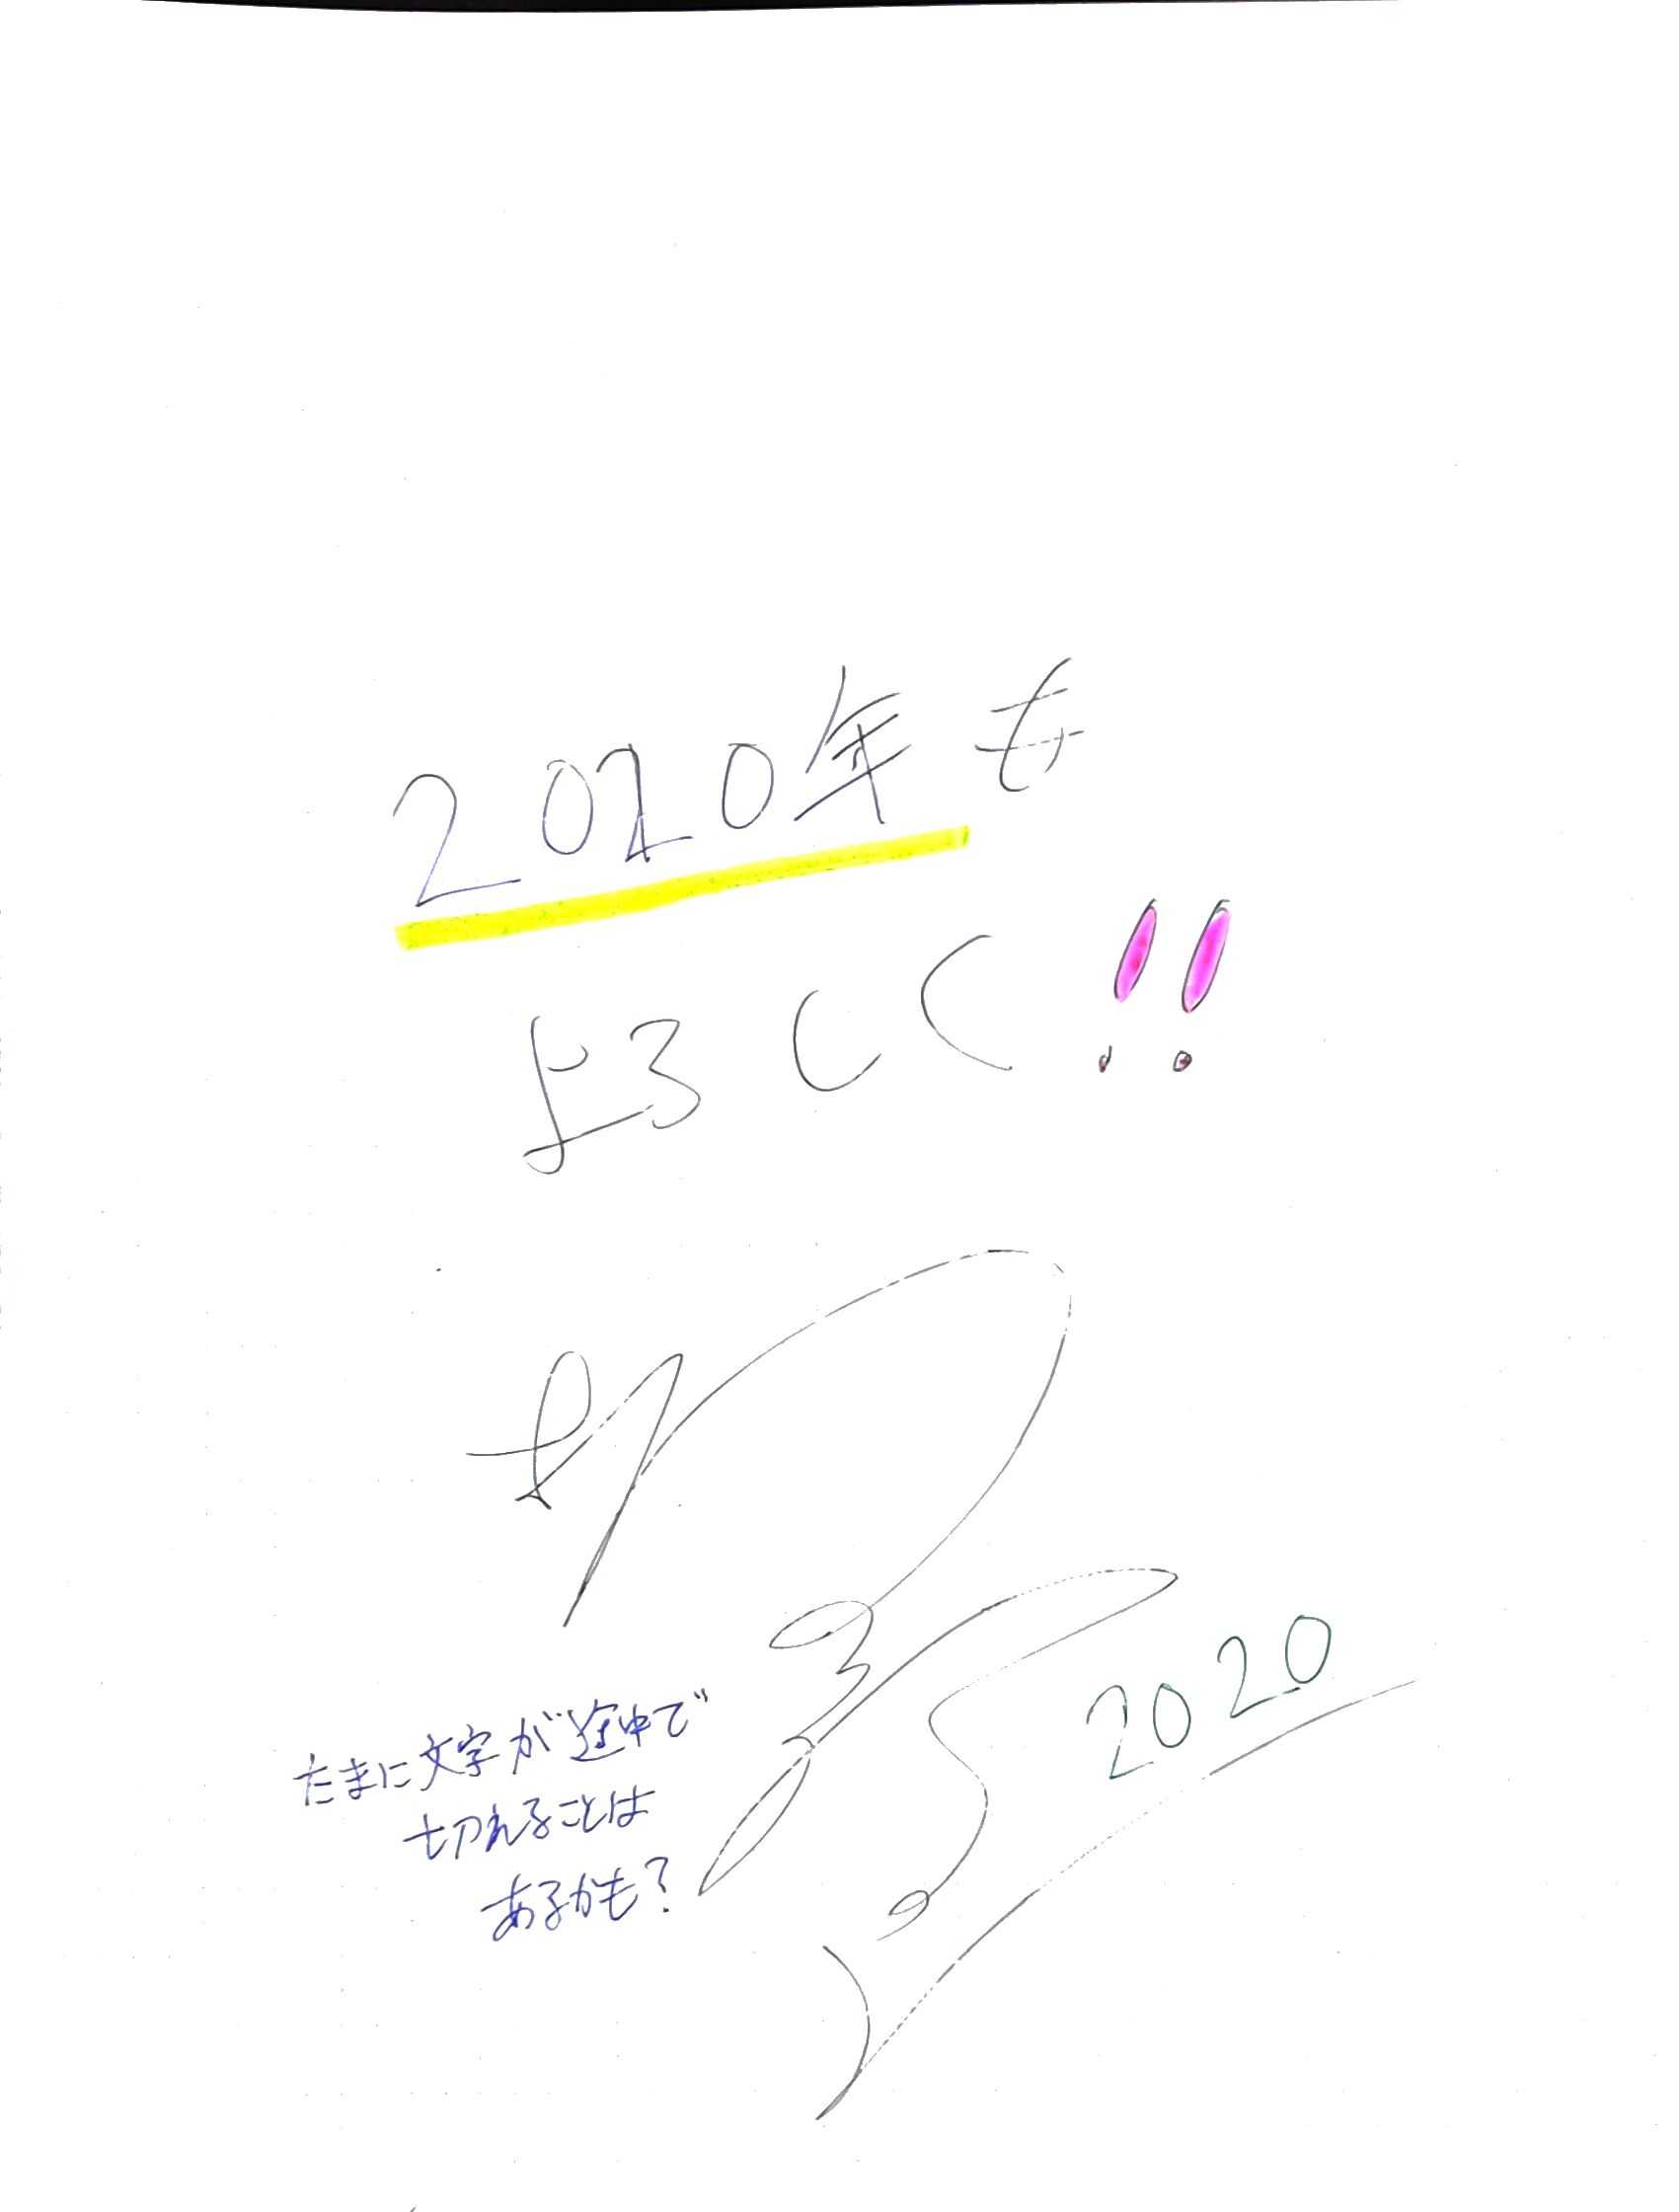 2020年も
よろしく!!
2020
たまに文字が途中で
切れることは
あるかも？